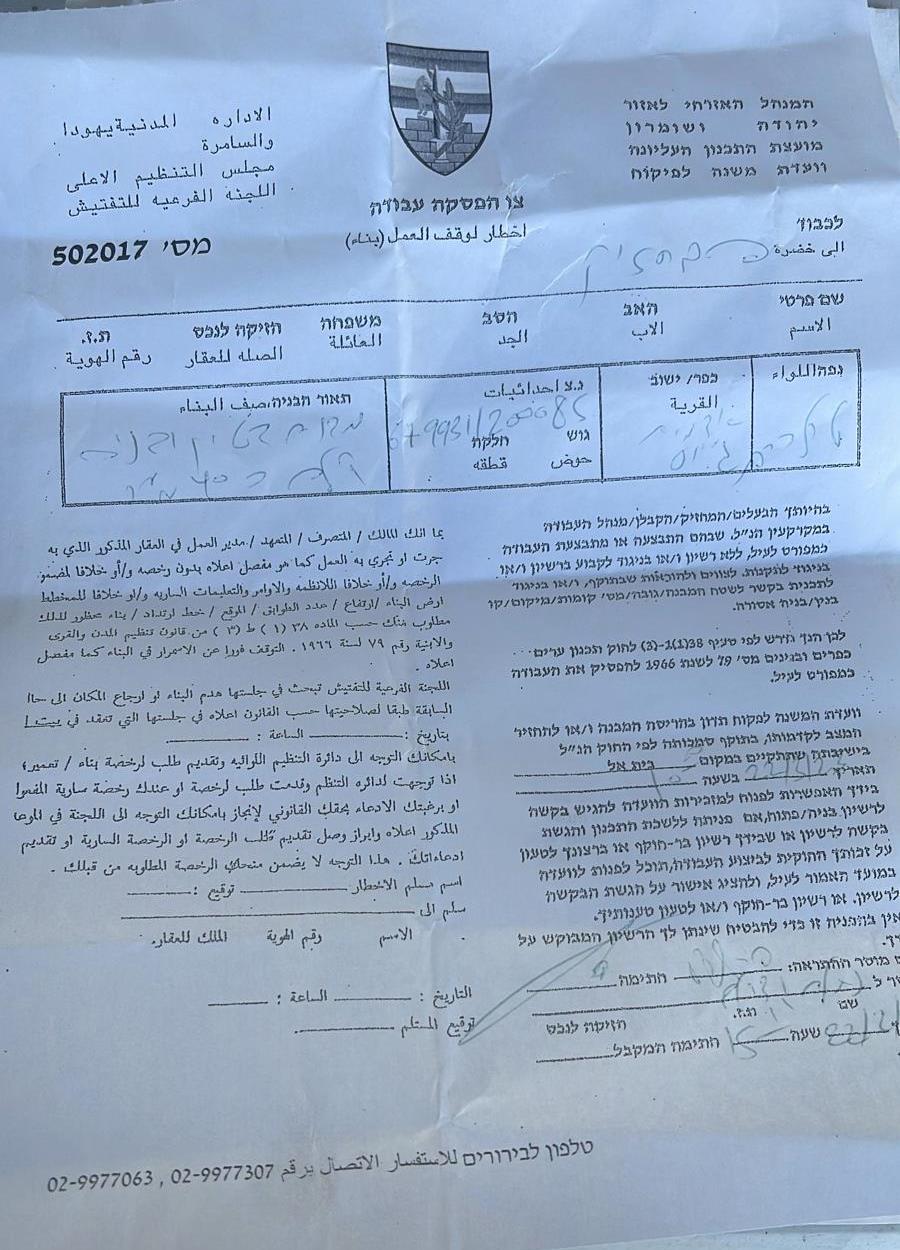 המנהל האזרחי לאזור
יהודה ושומרון
מועצת התכנון העליונה
וועדת משנה לפיקוח
الاداره المدنية يهودا
والسامرة
مجلس التنظيم الاعلى
اللجنة الفرعيه للتفتيش
צו הפסקה עבודה
اخطار لوقف العمل (بناء)
מס' 502017
לכבוד
الى حضرة
שם פרטי האב הסב משפחה חזיקה לנכס ת.ז.
الاسم الاب الجد العائلة الصله للعقار رقم الهوية
נפה اللواء
כפר/ ישוב
القرية
נ.צ احداثيات
גוש חלקה
حوض قطعه
תאור הבניה/صيف البناء
בהיותך הבעלים/המחזיק/הקבלן/מנהל העבודה
במקרקעין הנ"ל, שבהם התבצעה או מתבצעת העבודה
כמפורט לעיל, ללא רשיון ו/או בניגוד לקבוע ברשיון ו/או
בניגוד לתקנות, לצווים ולהוראות שבתוקף, ו/או בניגוד
לתכנית בקשר לשטח המבנה/גובה/מס' קומות/מיקום/קו
בנין/בניה אסורה.
לכן הנך נדרש לפי סעיף 38(1)-(3) לחוק תכנון ערים
כפרים ובנינים מס' 79 לשנת 1966 להפסיק את העבודה
כמפורט לעיל.
וועדת המשנה לפקוח תדון בהריסת המבנה ו/או להחזיר
המצב לקדמותו, בתוקף סמכותה לפי החוק הנ"ל
בישיבתה שתתקיים במקום בית אל
תאריך בשעה
בידך האפשרות לפנות למזכירות הוועדה להגיש בקשה
לרשיון בניה/פתוח, אם פניתה ללשכת התכנון והגשת
בקשה לרשיון או שבידך רשיון בר-תוקף או ברצונך לטעון
על זכותך החוקית לביצוע העבודה, תוכל לפנות לוועדה
במועד האמור לעיל, ולהציג אישור על הגשת הבקשה
לרשיון. או רשיון בר-תוקף ו/או לטעון טענותיך.
אין בהפניה זו כדי להבטיח שינתן לך הרשיון המבוקש על
מוסר ההתראה: חתימה
שם ת.ז. חזיקה לנכס
שעה חתימה המקבל
بما انك المالك / المتصرف / المتعهد / مدير العمل في العقار المذكور الذي به
جرت او تجري به العمل كما هو مفصل اعلاه بدون رخصه و/أو خلافا لمضمون
الرخصه و/أو خلافا للانظمه والاوامر والتعليمات الساريه و/او خلافا للمخطط
ارض البناء / ارتفاع / عدد الطوابق / الموقع / خط ارتداد / بناء محظور لذلك
مطلوب منك حسب الماده ٣٨ ( ١ ) ط ( ٣ ) من قانون تنظيم المدن والقرى
والابنية رقم ٧٩ لسنة ١٩٦٦ . التوقف فورا عن الاسمرار في البناء كما مفصل
اعلاه .
اللجنة الفرعية للتفتيش تبحث في جلستها هدم البناء او ارجاع المكان الى
السابقة طبقا لصلاحيتها حسب القانون اعلاه في جلستها التي تنعقد في
بتاريخ : الساعة :
بامكانك التوجه الى دائرة التنظيم اللوائيه وتقديم طلب لرخصة بناء / تعمير؛
اذا توجهت لدائره التنظم وقدمت طلب لرخصة او عندك رخصة سارية
او برغبتك الادعاء بحقك القانوني لإنجاز بامكانك التوجه الى اللجنة في
المذكور اعلاه وابراز وصل تقديم طلب الرخصة او الرخصة السارية او تقديم
ادعاءاتك . هذا التوجه لا يضمن منحك الرخصة المطلوبه من قبلك .
اسم مسلم الاخطار توقيع :
سلم الى
الاسم رقم الهوية المالك للعقار.
التاريخ : الساعة :
توقيع المستلم
טלפון לבירורים للاستفسار الاتصال برقم 02-9977063 , 02-9977307